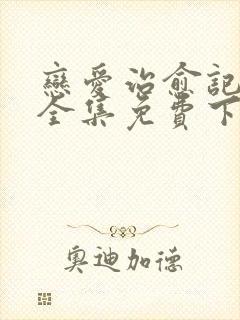 戀愛治愈記
全集免費下
奧迪加德